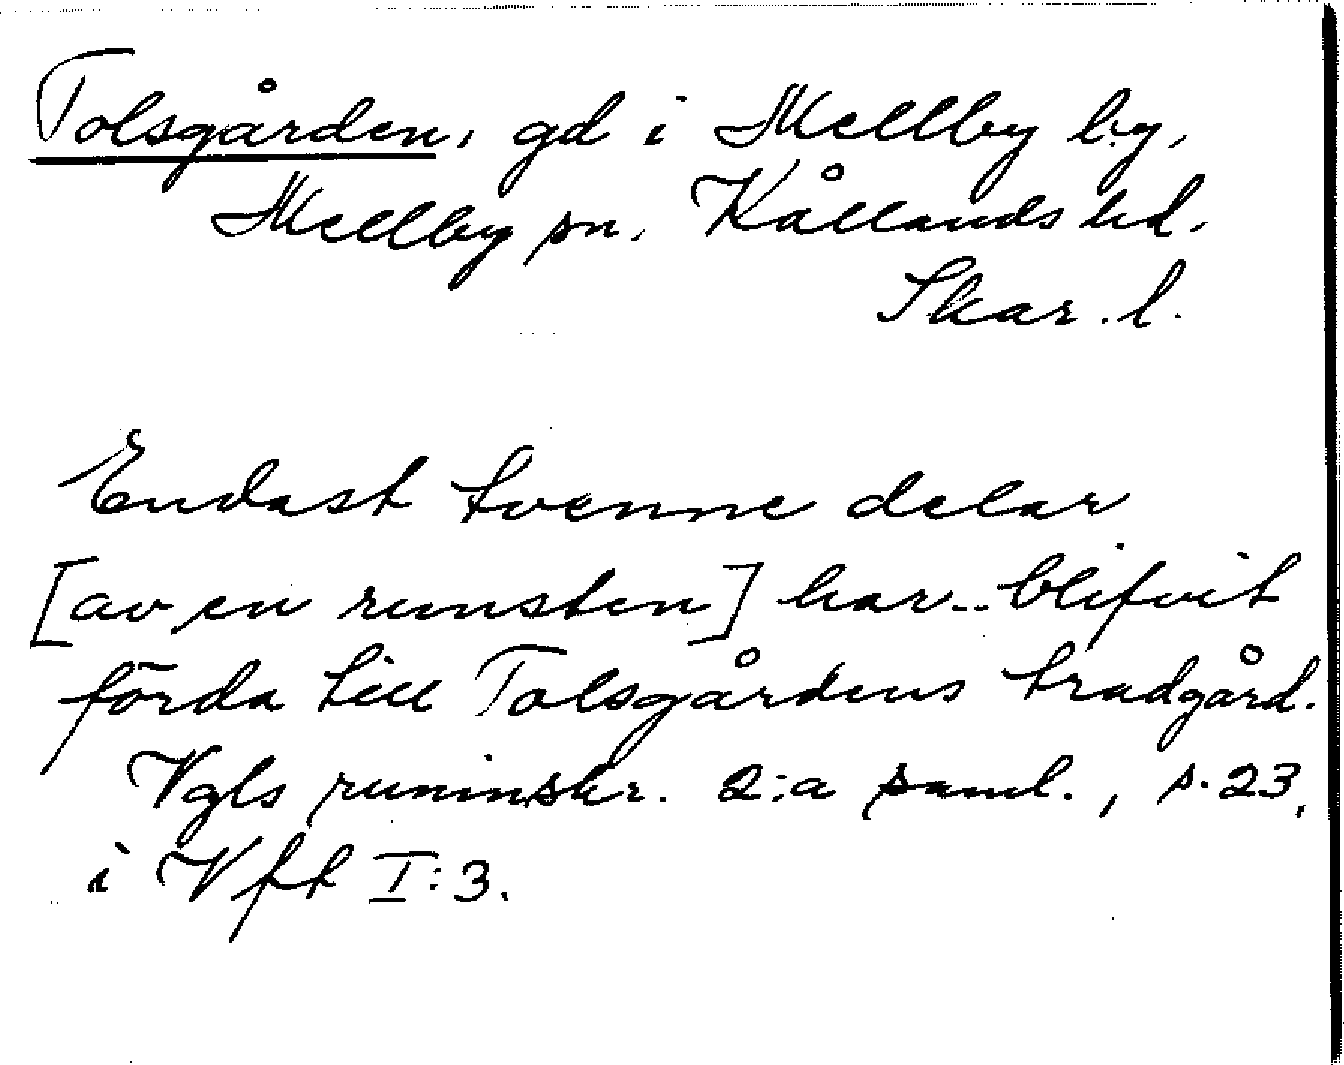 Tolsgården, gd i Mellby by,
Mellby sn, Kållands hd.
Skar. l.
Endast tvenne delar
[av en runsten] har.. blifvit
förda till Tolsgårdens tradgård.
Vgls runinskr. 2:a saml., s. 23,
i Vft I:3.